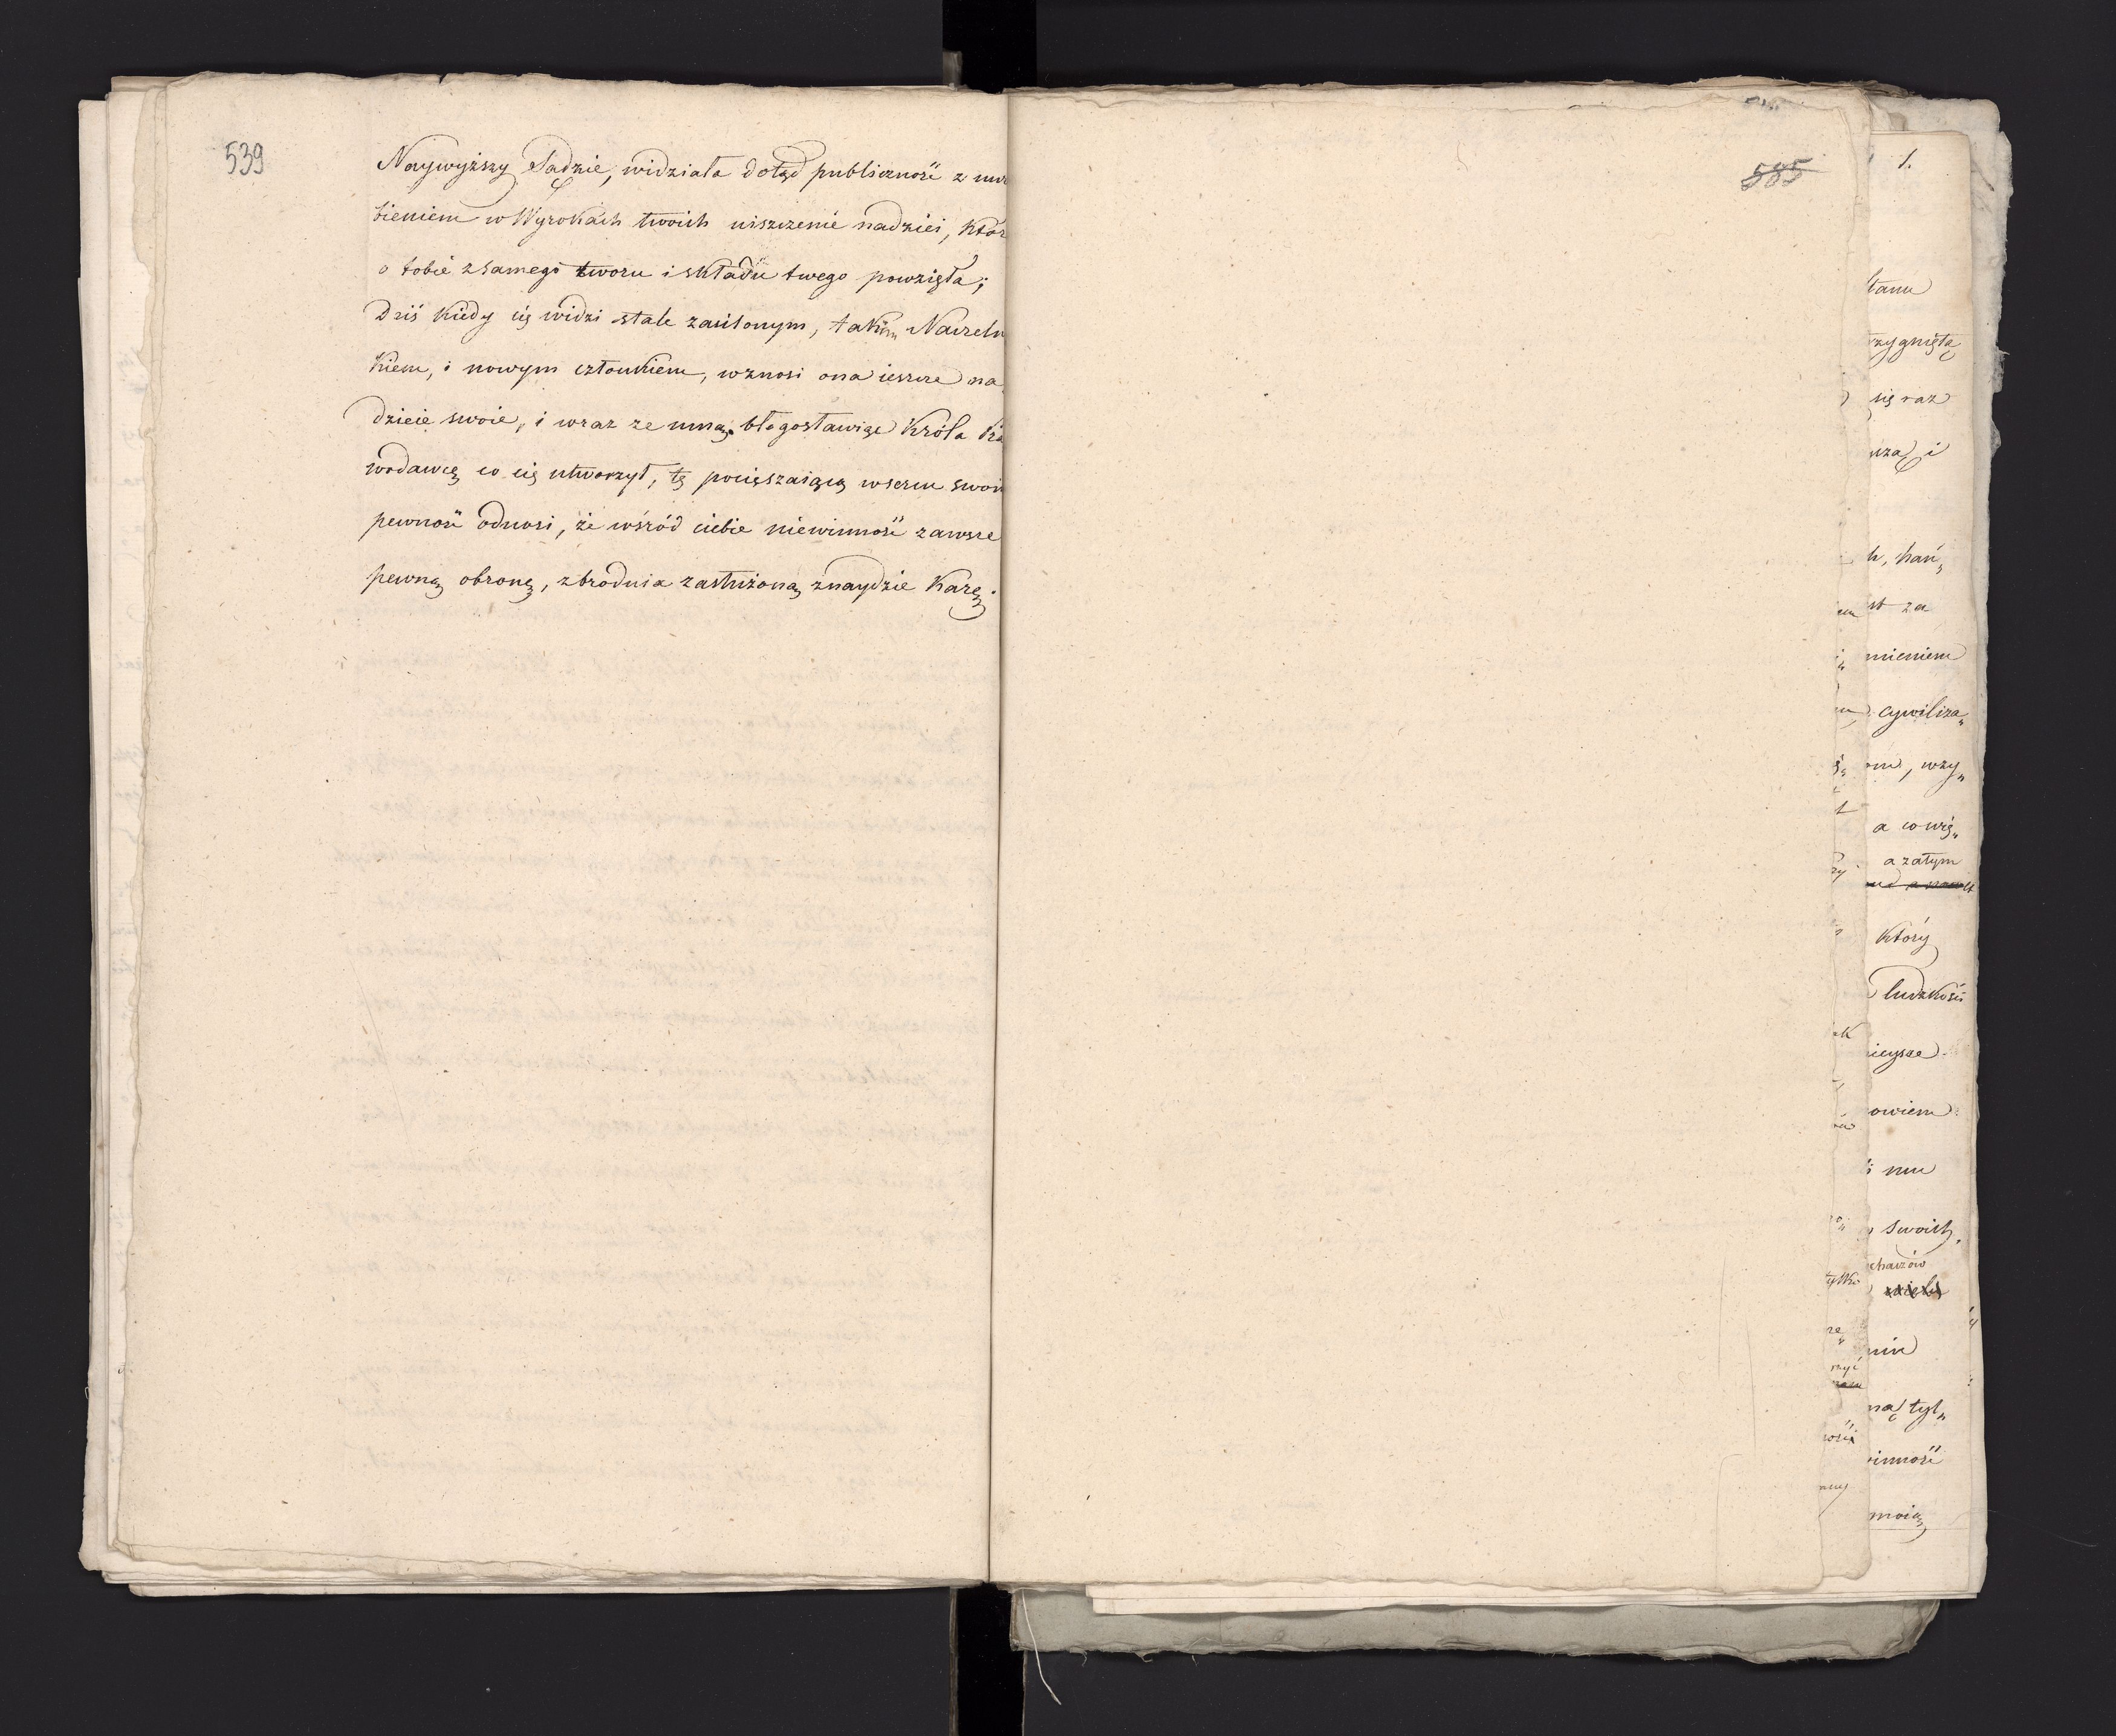 539
Naywyższy Sądzie, widziała dotąd publiczność z uwi
bieniem w Wyrokach twoich uiszczenie nadziei, któr
o tobie z samego tworu i składu twego powzięła;
Dziś kiedy cię widzi stale zasilonym, takim Naczeln
kiem, i nowym członkiem, wznosi ona ieszcze na
dzieie swoie, i wraz ze mną błogosławiąc Króla Pra
wodawcę co cię utworzył, tę pocięszaiącą w sercu swoim
pewność odnosi, że wśród ciebie niewinność zawsze
pewną obronę, zbrodnia zasłużoną znaydzie karę.
585
1.
stanu
zygnięta
się raz
i
h, hań„
st za
mieniem
cywiliza„
om, wzy„
a co wię„
a zatym
który
ludzkości
ieysze
owiem
i mu
swoich,
tylko
ną tyl„
inność
moią